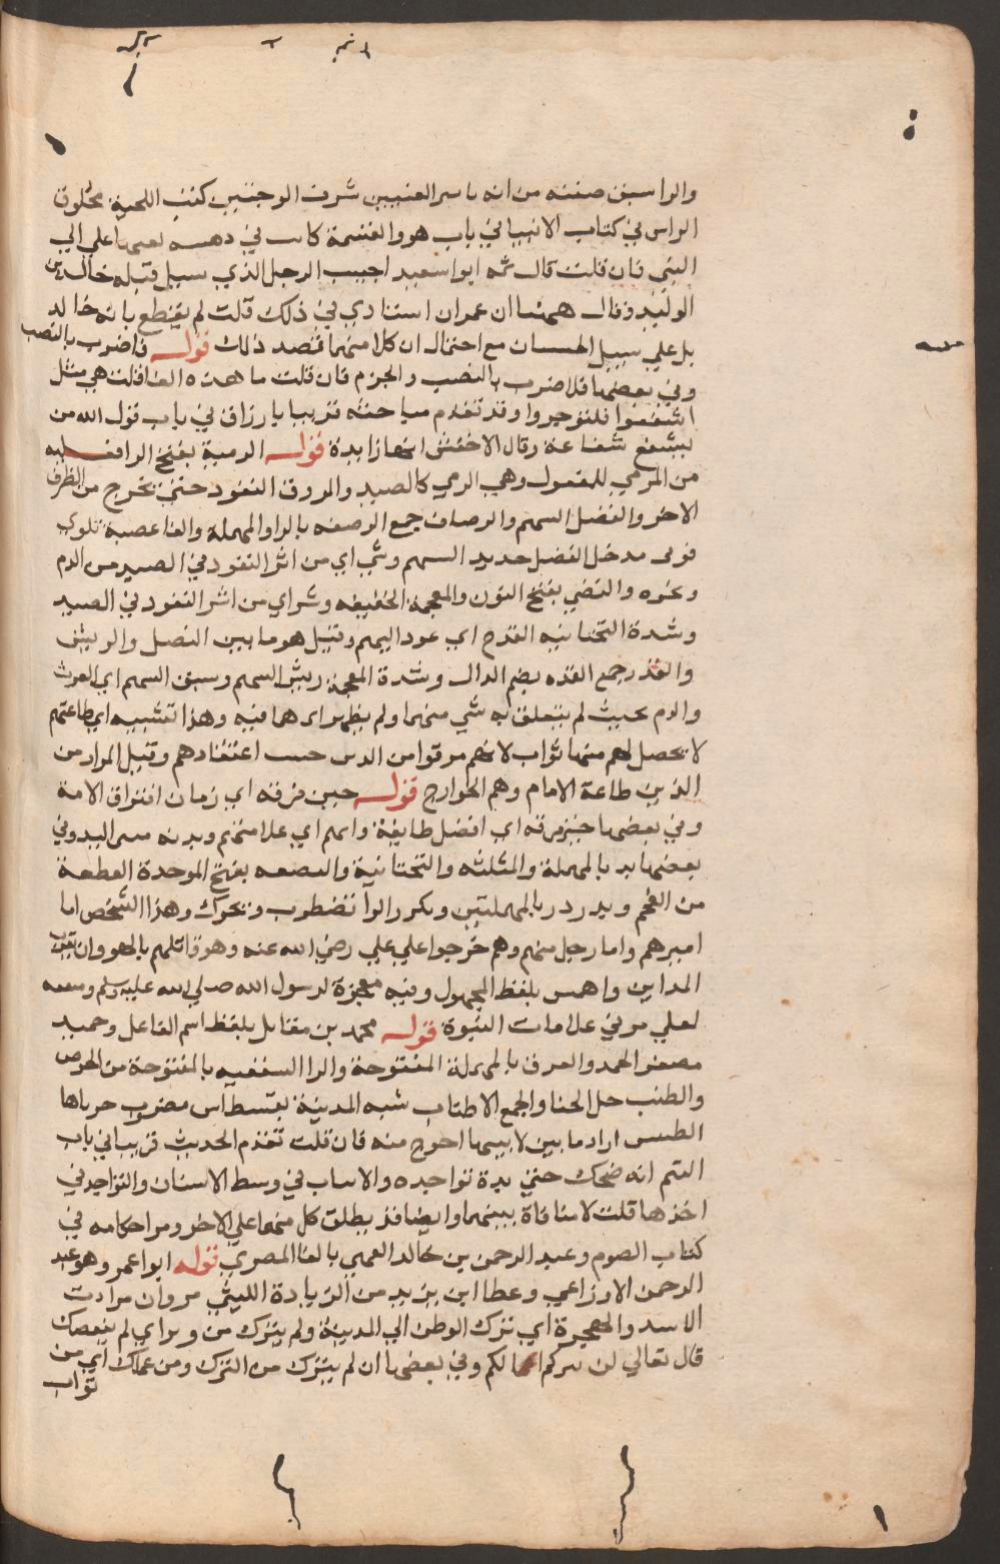 والرا سبق صفته من انه ناسر العينين شرف الوجنتين كثف اللحية محلوق
الراس في كتاب الانبيا في باب هود والقسمة كانت في دهسه بعثها علي الي
النبي فان قلت قال ثمه ابوا سعيد احسب الرجل الذي سيل قتله خالد بن
الوليد وقال همنا ان عمران استاذي في ذلك قلت لم يقطع بانه خالد
بل علي سبيل الحسبان مع احتمال ان كلا منهما قصد ذلك قوله فاضرب بالنصب
وفي بعضها فلا ضرب بالنصب والجزم فان قلت ما هذه الفا قلت هي مثل
اشفعوا فلتوجروا وقد تقدم مباحثه قريبا بارزاق في باب قول الله من
يشفع شفاعة وقال الاخفش انها زايدة قوله الرمية بفتح الرا فعيله
من المرمي للمفعول وهي الرمي كالصيد والمروق النفود حتي يخرج من الطرف
الاخر والفصل السهم والرصاف جمع الرصفه بالرا والمهملة والفا عصبة تلوي
فوق مدخل النصل حديد السهم وشي اي من اثر النفود في الصيد من الدم
ونحوه والنضي بفتح النون والمعجمة الخفيفه وشي اي من اثر النفود في الصيد
وشدة التحتانيه القدح اي عود السهم وقيل هو ما بين النصل والريش
والقذذ جمع القذه بضم الدال وشدة المعجمة ريش السهم وسبق السهم اي الفرث
والدم بحيث لم يتعلق به شي منهما ولم يظهر اثرهما فيه وهذا تشبيه اي طاعتهم
لا يحصل لهم منها ثواب لانهم مرقوا من الدين حسب اعتقادهم وقيل المراد من
الدين طاعة الامام وهم الخوارج قوله حين فرقه اي زمان افتراق الامة
وفي بعضها خير فرقه اي افضل طايفة وايهم اي علامتهم ويديه مثنى اليد وفي
بعضها يد بالمهملة والمثلثه والتحتانية والبضعه بفتح الموحدة القطعة
من اللحم ويدردر بالمهملتين وبكرر الرا تضطرب وتتحرك وهذا الشخص اما
اميرهم واما رجل منهم وهم خرجوا علي علي رضي الله عنه وهو قاتلهم بالنهروان بقرب
المداين والتمس بلفظ المجهول وفيه معجزة لرسول الله صلي الله عليه وسلم ومنقبه
لعلي مر في علامات النبوة قوله محمد بن مقاتل بلفظ اسم الفاعل وحميد
مصغر الحمد والعرق بالمهملة المفتوحة والرا السقفيه بالمنسوجة من الخوص
والطنب حبل الخبا والجمع الاطناب شبه المدينة بفسطاط مضروب حرباها
الطنبين اراد ما بين لابتيها احوج منه فان قلت تقدم الحديث قريبا في باب
التبسم انه ضحك حتي بدة نواجده والانياب في وسط الاسنان والنواجد في
اخذها قلت لا منافاة بينهما وايضا قد يطلق كل منهما علي الاخر ومر احكامه في
كتاب الصوم وعبد الرحمن بن خالد الفهمي بالفا المصري قوله ابوا عمر وهو عبد
الرحمن الاوزاعي وعطا ابن يزيد من الزيادة الليثي مروان مرادت
الاسد والهجرة اي ترك الوطن الي المدينة ولم يترك من وتر اي لم ينقصك
قال تعالي لن يتركم اعمالكم وفي بعضها ان لم يترك من الترك ومن عملك اي من
ثواب